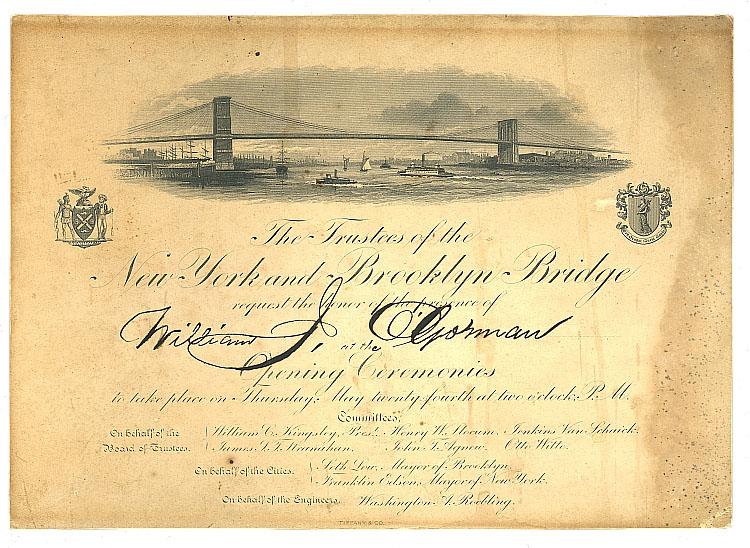 The Trustees of the
New York and Brooklyn Bridge
request the honor of the presence of
William J. O'Gorman
at the
Opening Ceremonies
to take place on Thursday, May twenty fourth at two o'clock, P.M.
Committees.
On behalf of the Board of Trustees. William C. Kingsley, Pres.t Henry W. Slocum. Jenkins Van Schaick.
James S.T. Stranahan. John T. Agnew. Otto Witte.
On behalf of the Cities. Seth Low, Mayor of Brooklyn.
Franklin Edson, Mayor of New York.
On behalf of the Engineers. Washington A. Roebling.
TIFFANY & CO.